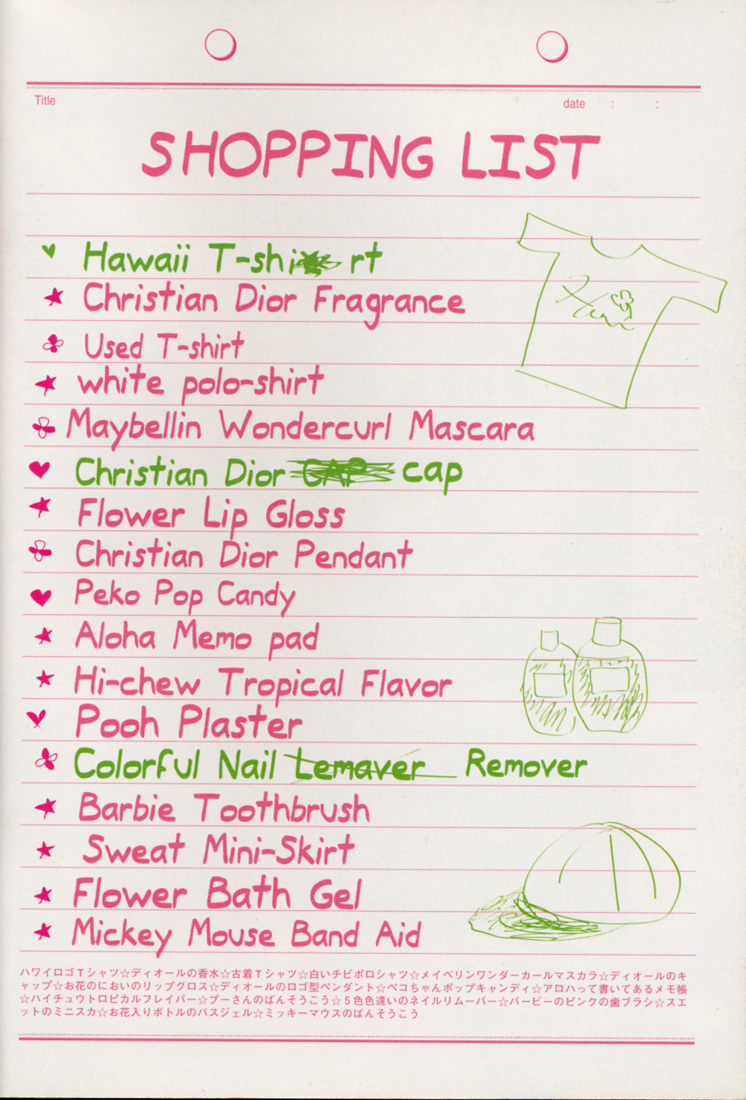 Title
date : :
SHOPPING LIST
Hawaii T-shi rt
Christian Dior Fragrance
Used T-shirt
white polo-shirt
Maybellin Wondercurl Mascara
Christian Dior CAP cap
Flower Lip Gloss
Christian Dior Pendant
Peko Pop Candy
Aloha Memo pad
Hi-chew Tropical Flavor
Pooh Plaster
Colorful Nail Lemaver Remover
Barbie Toothbrush
Sweat Mini-Skirt
Flower Bath Gel
Mickey Mouse Band Aid
ハワイロゴTシャツ☆ディオールの香水☆古着Tシャツ☆白いチビポロシャツ☆メイベリンワンダーカールマスカラ☆ディオールのキ
ャップ☆お花のにおいのリップグロス☆ディオールのロゴ型ペンダント☆ペコちゃんポップキャンディ☆アロハって書いてあるメモ帳
☆ハイチュウトロピカルフレイバー☆プーさんのばんそうこう☆5色色違いのネイルリムーバー☆バービーのピンクの歯ブラシ☆スエ
ットのミニスカ☆お花入りボトルのバスジェル☆ミッキーマウスのばんそうこう